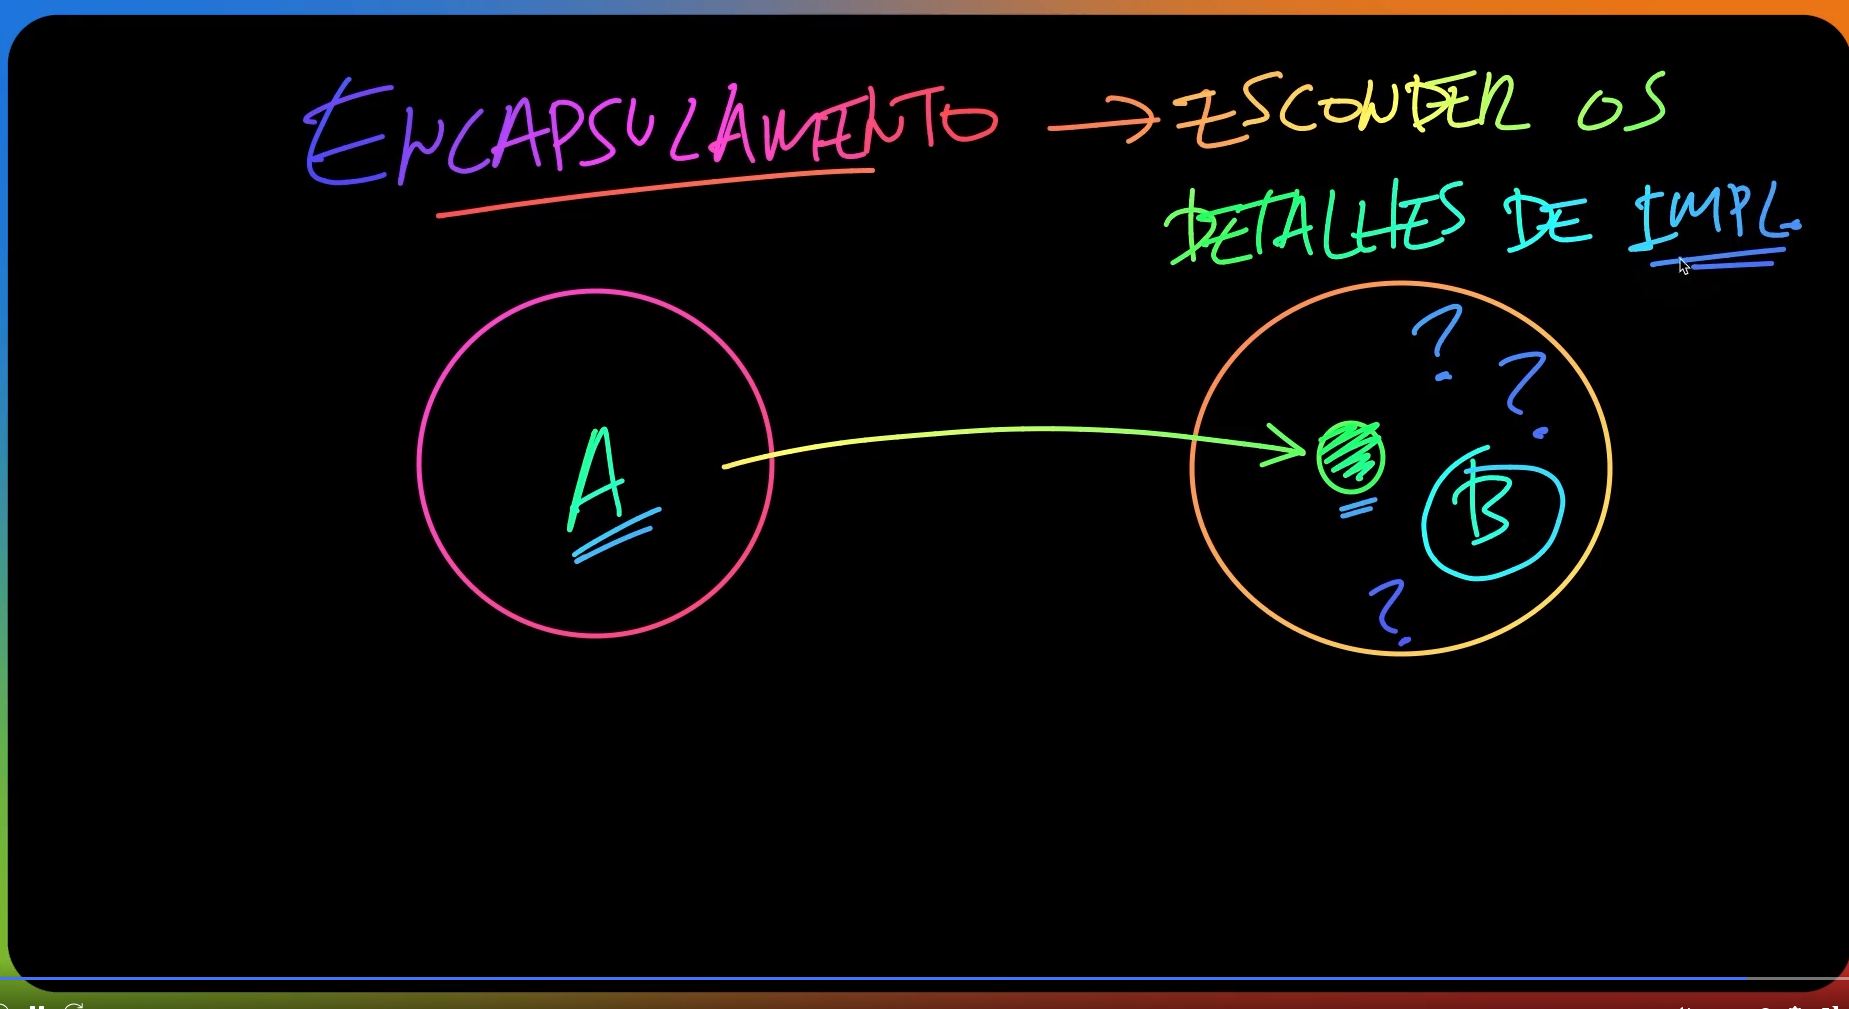 ENCAPSULAMENTO → ESCONDER OS
DETALHES DE IMPL.
A
?
?
B
?